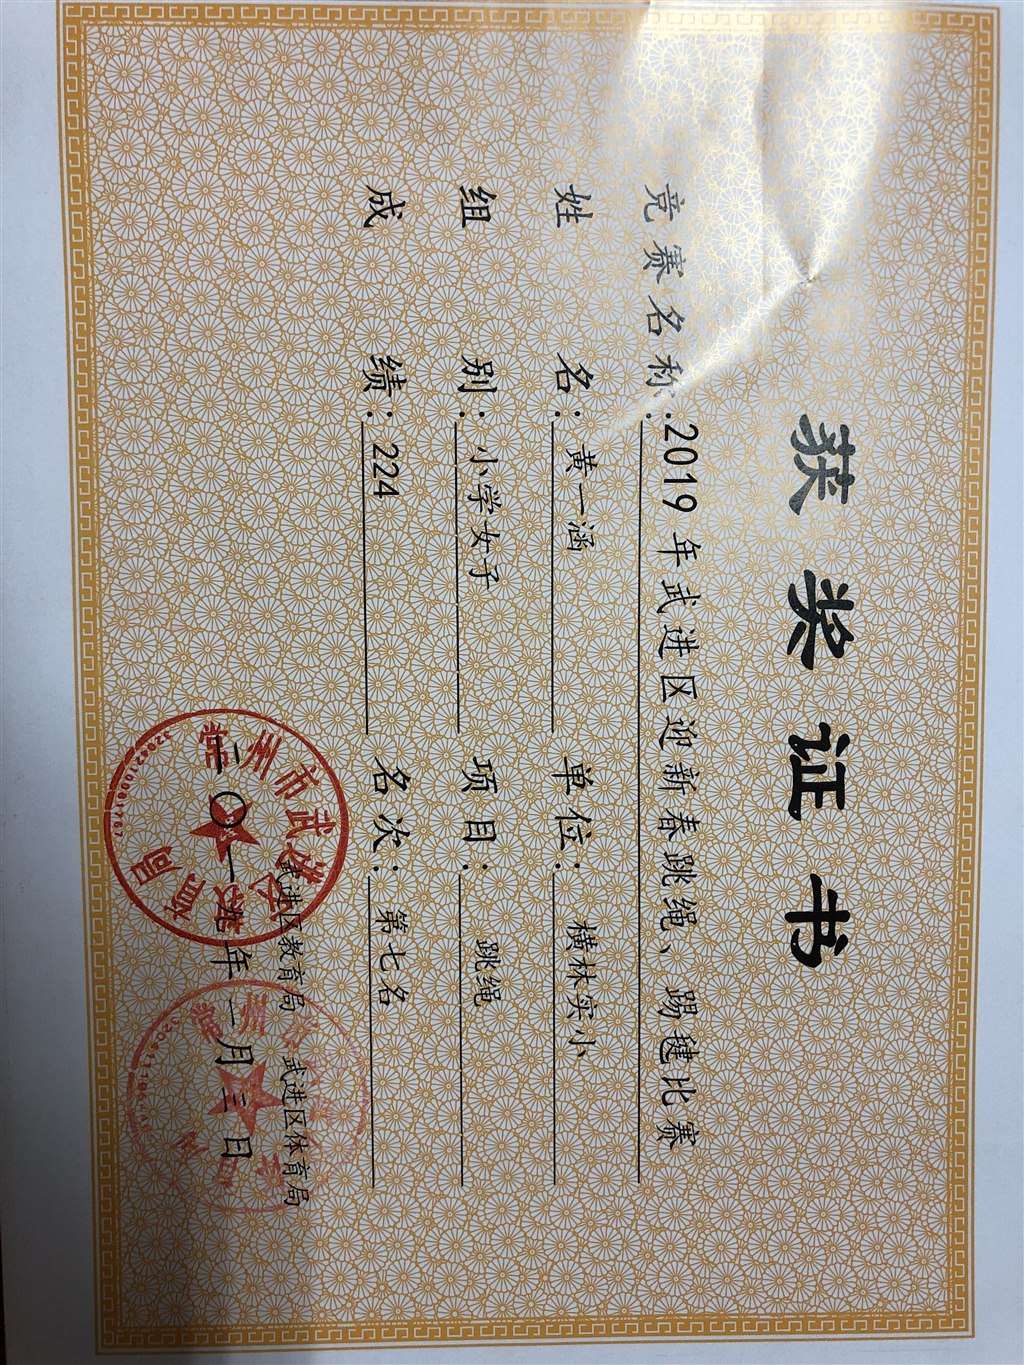 获奖证书
竞赛名称：2019年武进区迎新春跳绳、踢毽比赛
姓名：黄一涵 单位：横林实小
组别：小学女子 项目：跳绳
成绩：224 名次：第七名
武进区教育局 武进区体育局
二〇一九年一月三日
常州市武进区教育局